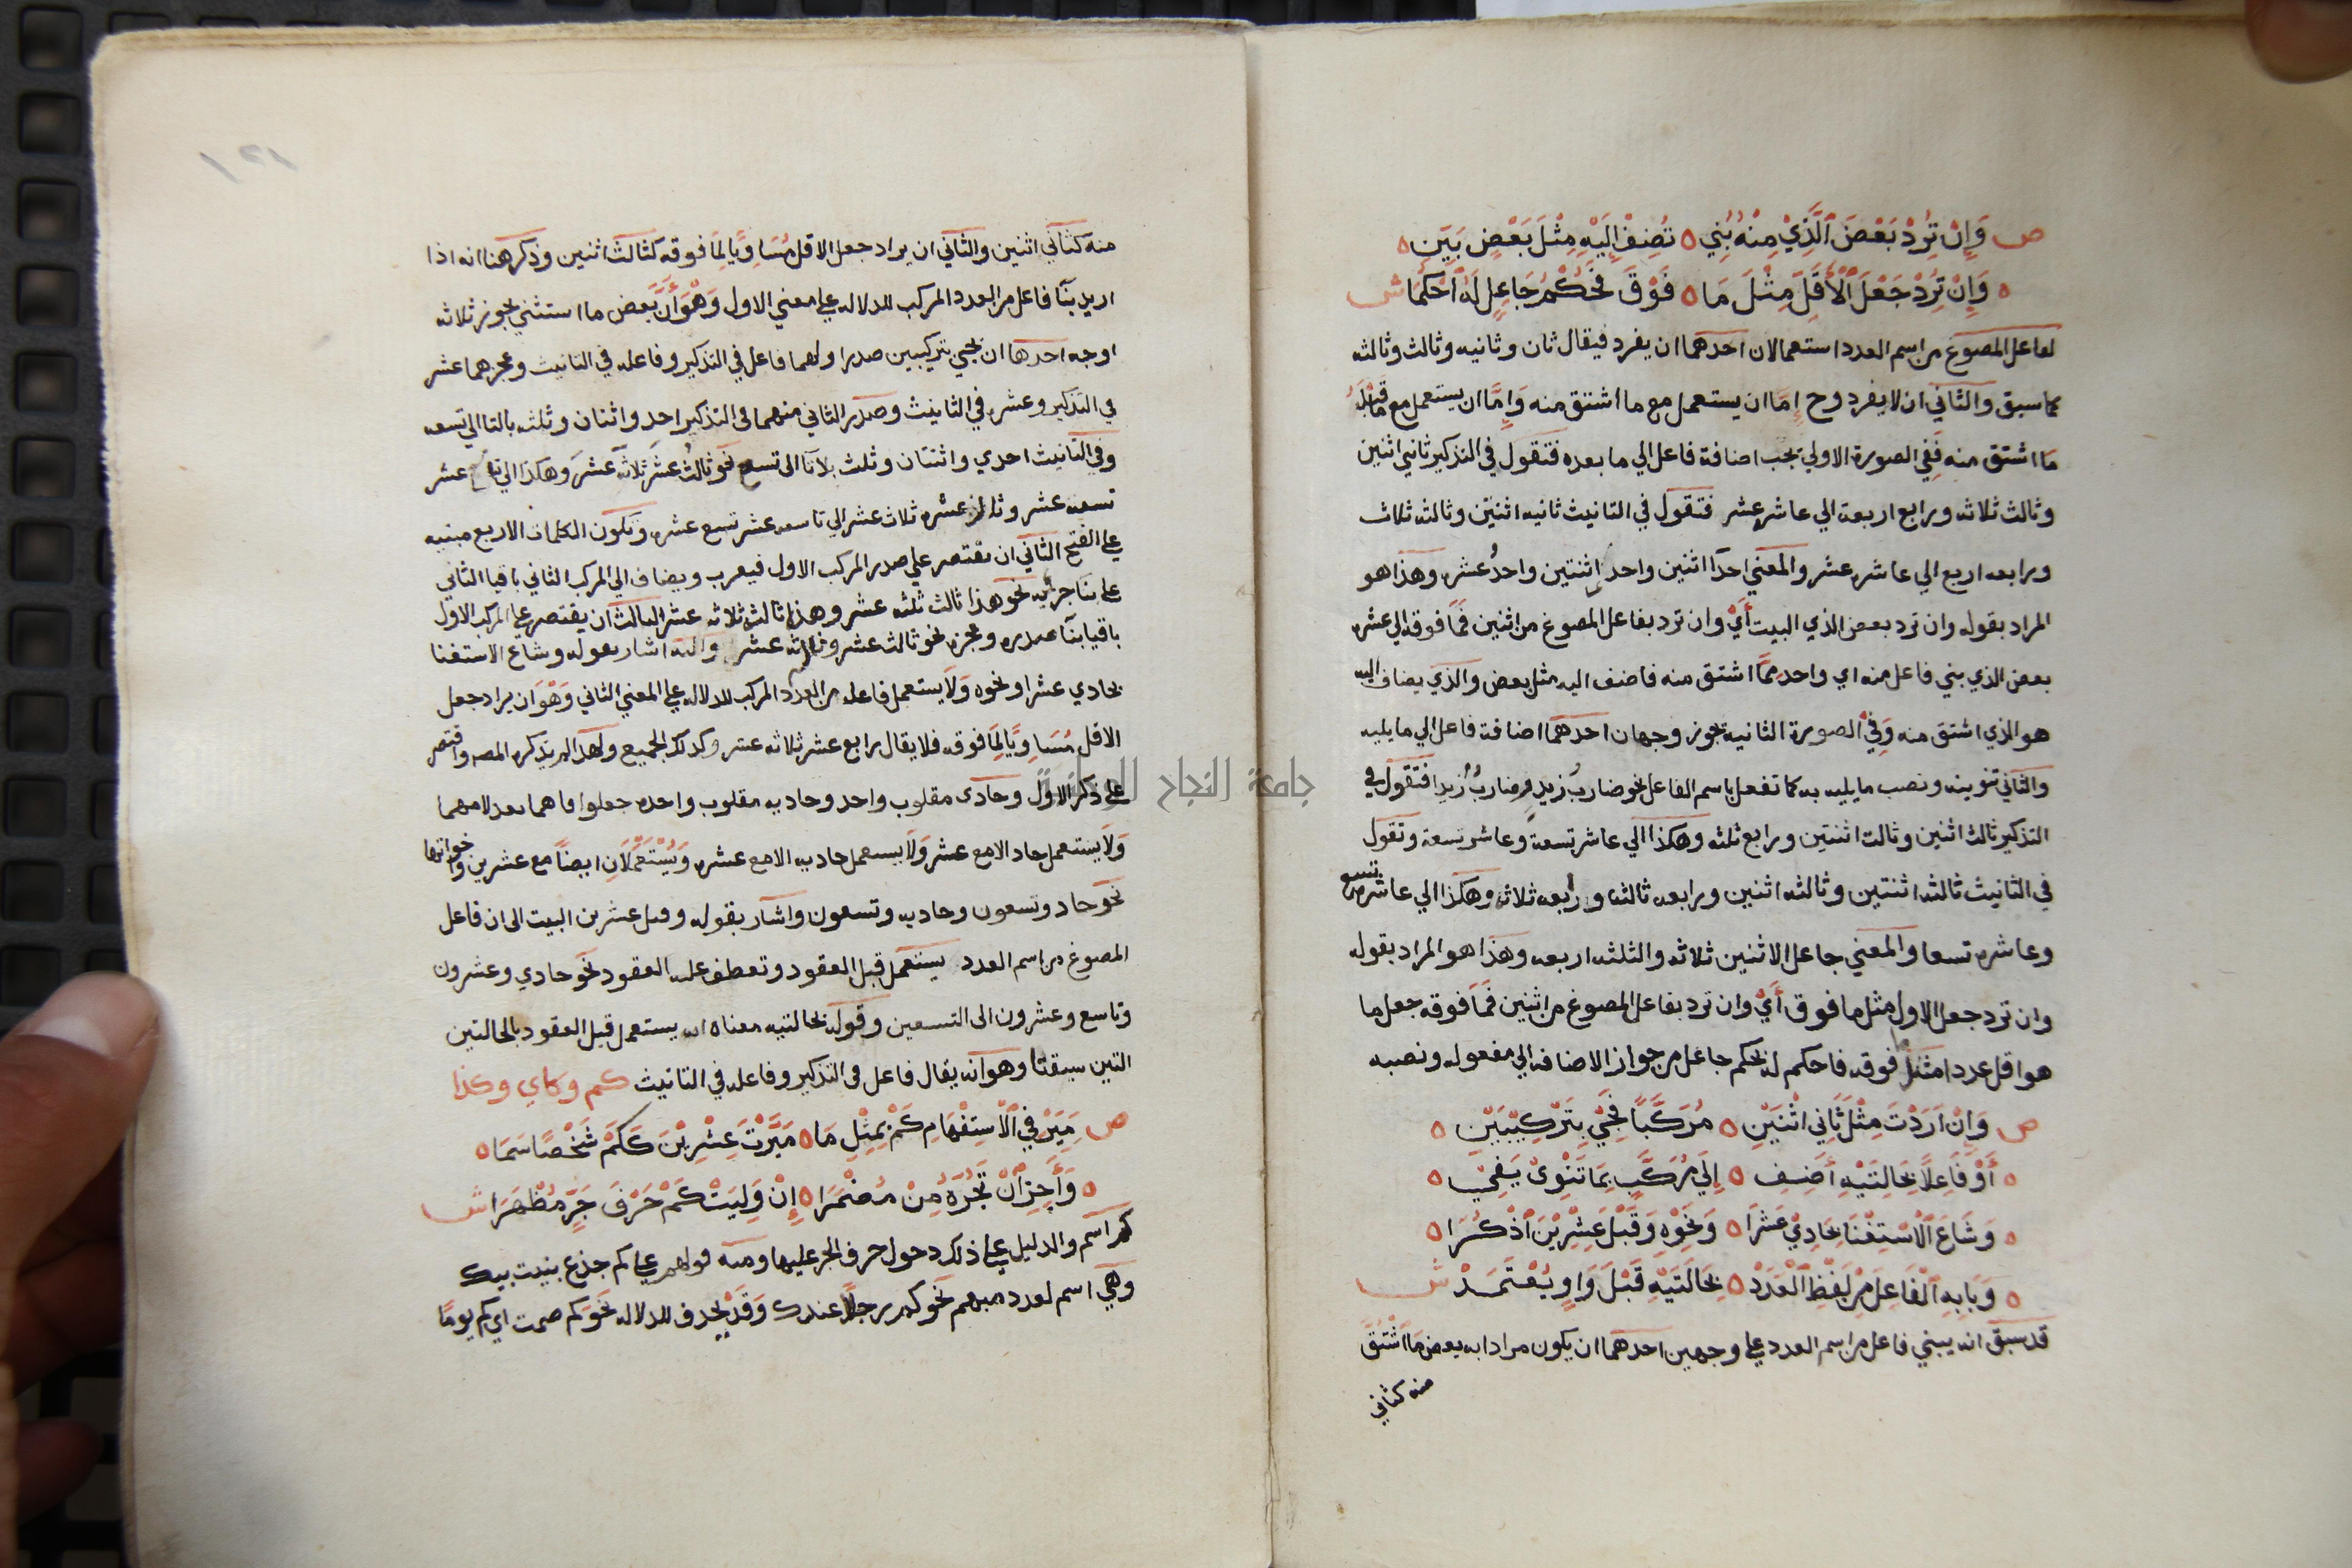 ص وَإِنْ تُرِدْ بَعْضَ ٱلَّذِيْ مِنْهُ بُنِي ٥ تُضِفْ إِلَيْهِ مِثْلَ بَعْضٍ بَيِّنِ ٥
٥ وَإِنْ تُرِدْ جَعْلَ ٱلْأَقَلِّ مِثْلَ مَا ٥ فَوْقَ فَحُكْمُ جَاعِلٍ لَهُ ٱحْكُمَا ش
لفاعل المصوغ من اسم العدد استعمالان احدهما ان يفرد فيقال ثان وثانيه وثالث وثالثه
كما سبق والثاني ان لا يفرد وح إما ان يستعمل مع ما اشتق منه وإما ان يستعمل مع ما قبل
ما اشتق منه ففي الصورة الاولي يجب اضافة فاعل الي ما بعده فتقول في التذكير ثاني اثنين
وثالث ثلاثه ورابع اربعة الي عاشر عشر فتقول في التانيث ثانيه اثنتين وثالثه ثلاث
ورابعه اربع الي عاشره عشر والمعني احد اثنين واحد اثنتين واحد عشره وهذا هو
المراد بقوله وان ترد بعض الذي البيت أي وان ترد بفاعل المصوغ من اثنين فما فوقه الي عشره
بعض الذي بني فاعل منه اي واحد مما اشتق منه فاضف اليه مثل بعض والذي يضاف اليه
هو الذي اشتق منه وفي الصورة الثانيه يجوز وجهان احدهما اضافة فاعل الي ما يليه
والثاني تنوينه ونصب ما يليه به كما تفعل باسم الفاعل نحو ضارب زيدٍ وضاربٌ زيدا فتقول في
التذكير ثالث اثنين وثالث اثنتين ورابع ثلثه وهكذا الي عاشر تسعة وعاشر تسعة وتقول
في التانيث ثالثه اثنتين وثالثه اثنين ورابعه ثالثه ورابعه ثلاثه وهكذا الي عاشره تسع
وعاشره تسعا والمعني جاعل الاثنين ثلاثه والثلثه اربعه وهذا هو المراد بقوله
وان ترد جعل الاول مثل ما فوق أي وان ترد بفاعل المصوغ من اثنين فما فوقه جعل ما
هو اقل عددا مثل ما فوقه فاحكم له بحكم جاعل من جواز الاضافه الي مفعوله ونصبه
ص وَإِنْ اَرَدْتَ مِثْلَ ثَانِي اثْنَيْنِ ٥ مُرَكَّبًا فَجِيْ بِتَرْكِيْبَيْنِ ٥
٥ أَوْ فَاعِلاً بِحَالتَيْهِ أَضِفِ ٥ إِلَي مُرَكَّبٍ بِمَا تَنْوِيْ يَفِيْ ٥
٥ وَشَاعَ ٱلْاسْتِغْنَا بِحَادِيْ عَشَرَا ٥ وَنَحْوِهِ وَقَبْلَ عِشْرِيْنَ ٱذْكُرَا ٥
٥ وَبَابِهِ ٱلْفَاعِلَ مِنْ لَفْظِ ٱلْعَدَدْ ٥ بِحَالَتَيْهِ قَبْلَ وَاوٍ يُعْتَمَدْ ش
قد سبق انه يبني فاعل من اسم العدد علي وجهين احدهما ان يكون مرادا به بعض ما اشتق
منه كثاني
منه كثاني اثنين والثاني ان يراد جعل الاقل مساويا لما فوقه كثالث اثنين وذكر هنا انه اذا
اريد بنا فاعل من العدد المركب للدلاله علي معني الاول وهو أن بعض ما استثني يجوز ثلاثه
اوجه احدها ان يجي بتركيبين صدر اولهما فاعل في التذكير وفاعله في التانيث وعجزهما عشر
في التذكير وعشره في التانيث وصدر الثاني منهما في التذكير احد واثنان وثلثه بالتا الي تسعه
وفي التانيث احدي واثنتان وثلث بلا تا الي تسع نحو ثالث عشر ثلاثة عشر وهكذا الي تاسع عشر
تسعه عشر وثالثه عشره ثلاث عشر الي تاسعه عشر تسع عشره وتكون الكلمات الاربع مبنيه
علي الفتح الثاني ان يقتصر علي صدر المركب الاول فيعرب ويضاف الي المركب الثاني باقيا الثاني
علي بنا جزايه نحو هذا ثالث ثلثه عشر وهذه ثالثه ثلاثه عشر الثالث ان يقتصر علي المركب الاول
باقيا بنا صدره وعجزه نحو ثالث عشر وثالثه عشر واليه اشار بقوله وشاع الاستغنا
بحادي عشرا ونحوه ولا يستعمل فاعله من العدد المركب للدلاله علي المعني الثاني وهو ان يراد جعل
الاقل مساويا لما فوقه فلا يقال رابع عشر ثلاثه عشر وكذلك الجميع ولهذا لم يذكره المص واقتصر
علي ذكر الاول وحادي مقلوب واحد وحاديه مقلوب واحده جعلوا فاهما بعد لامهما
ولا يستعمل حاد الا مع عشر ولا يستعمل حاديه الا مع عشره ويستعملان ايضا مع عشرين واخواتها
نحو حاد وتسعون وحاديه وتسعون واشار بقوله وقبل عشرين البيت الي ان فاعل
المصوغ من اسم العدد يستعمل قبل العقود وتعطف عليه العقود نحو حادي وعشرون
وتاسع وعشرون الي التسعين وقوله بحالتيه معناه انه يستعمل قبل العقود بالحالتين
التين سبقتا وهو انه يقال فاعل في التذكير وفاعله في التانيث كم وكاي وكذا
ص مَيِّزْ فِي ٱلْاسْتِفْهَامِ كَمْ بِمِثْلِ مَا ٥ مَيَّزْتَ عِشْرِيْنَ كَكَمْ شَخْصًا سَمَا ٥
٥ وَأَجِزِ ٱنْ تَجُرَّهُ مِنْ مُضْمَرَا ٥ إِنْ وَلِيَتْ كَمْ حَرْفَ جَرٍّ مُظْهَرَا ش
كم اسم والدليل علي ذلك دخول حرف الجر عليها ومنه قولهم علي كم جذع بنيت بيتك
وهي اسم لعدد مبهم نحو كم رجلا عندك وقد يحذف للدلاله نحو كم صمت اي كم يومًا
١٢١
جامعة النجاح الوطنية